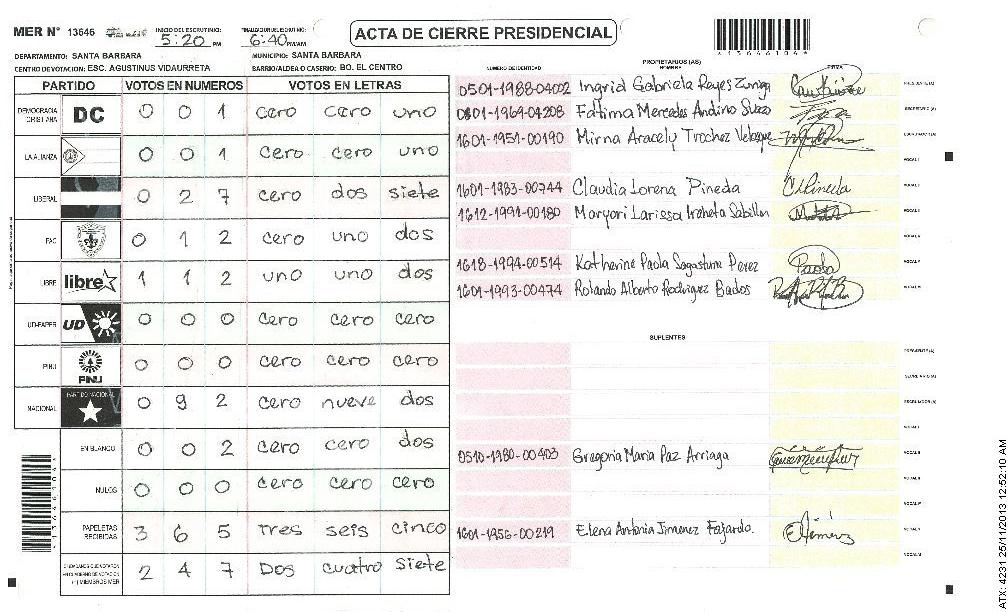 MER N° 13646 INICIO DEL ESCRUTINIO: 5:20 PM FINALIZACION ESCRUTINIO: 6:40 PM/AM
ACTA DE CIERRE PRESIDENCIAL
136461041
DEPARTAMENTO: SANTA BARBARA MUNICIPIO: SANTA BARBARA
CENTRO DE VOTACION: ESC. AGUSTINUS VIDAURRETA BARRIO/ALDEA O CASERIO: BO. EL CENTRO
PARTIDO VOTOS EN NUMEROS VOTOS EN LETRAS
DEMOCRACIA CRISTIANA DC 0 0 1 cero cero uno
LA ALIANZA 0 0 1 cero cero uno
LIBERAL 0 2 7 cero dos siete
PAC 0 1 2 cero uno dos
LIBRE libre 1 1 2 uno uno dos
UD-FAPER UD 0 0 0 cero cero cero
PINU PINU 0 0 0 cero cero cero
NACIONAL PARTIDO NACIONAL 0 9 2 cero nueve dos
EN BLANCO 0 0 2 cero cero dos
NULOS 0 0 0 cero cero cero
PAPELETAS RECIBIDAS 3 6 5 tres seis cinco
CIUDADANOS QUE VOTARON EN CUADERNO DE VOTACION (+) MIEMBROS MER 2 4 7 Dos cuatro siete
PROPIETARIOS (AS)
NUMERO DE IDENTIDAD NOMBRE FIRMA
0501-1988-04002 Ingrid Gabriela Reyes Zuniga PRESIDENTE (A)
0801-1969-04208 Fatima Mercedes Andino Suazo SECRETARIO (A)
1601-1951-00190 Mirna Aracely Trochez Velasquez ESCRUTADOR (A)
VOCAL I
1601-1983-00744 Claudia Lorena Pineda CLPineda
1612-1991-00180 Maryori Larissa Iraheta Sabillon
1618-1994-00514 Katherine Paola Sagastume Perez Paola
1601-1993-00474 Rolando Alberto Rodriguez Bados
SUPLENTES
PRESIDENTE (A)
SECRETARIO (A)
ESCRUTADOR (A)
0510-1980-00403 Gregoria Maria Paz Arriaga
1601-1956-00219 Elena Antonia Jimenez Fajardo EJimenez
ATX: 4231 25/11/2013 12:52:10 AM